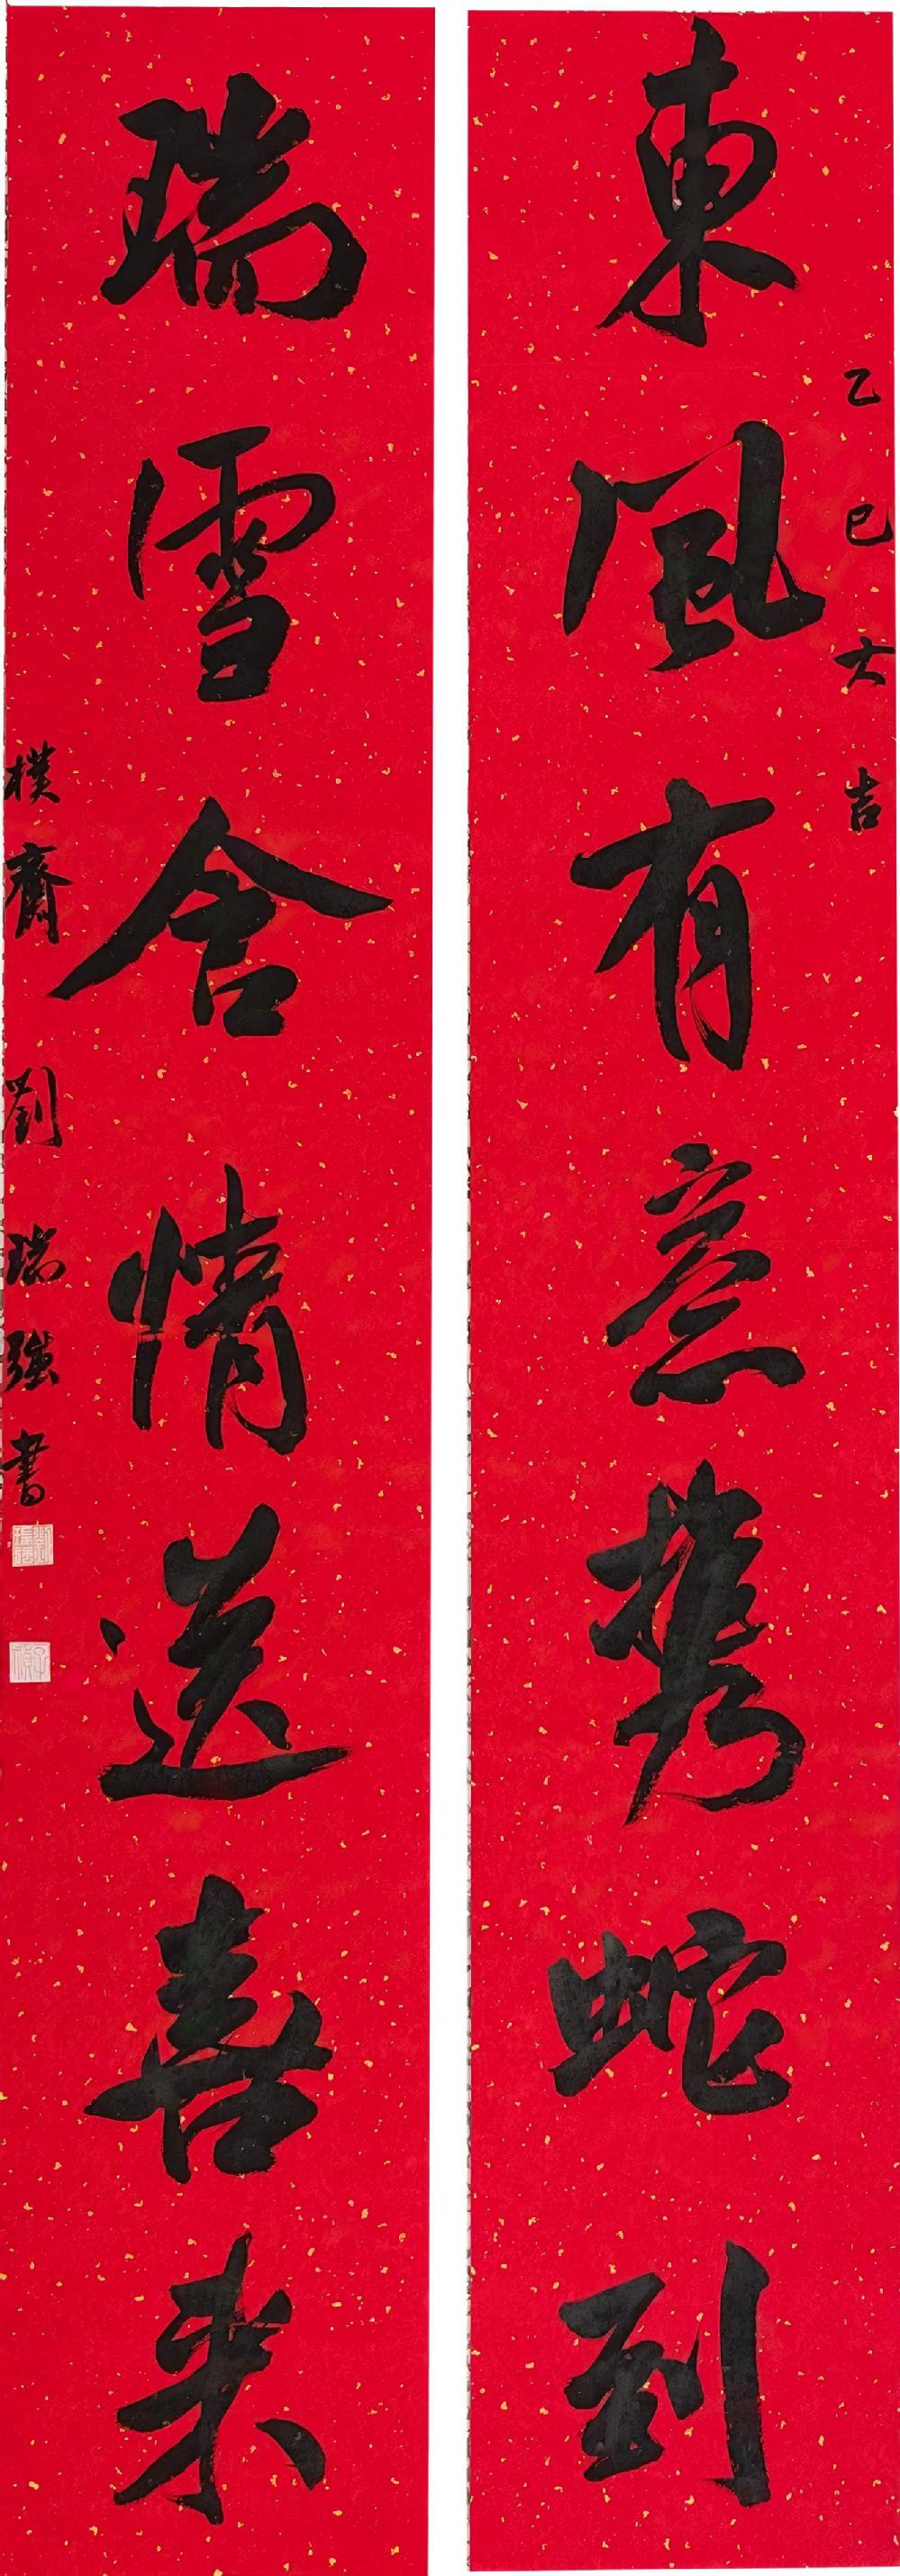 乙巳大吉
東風有意携蛇到
瑞雪含情送喜来
樸齋劉瑞強書